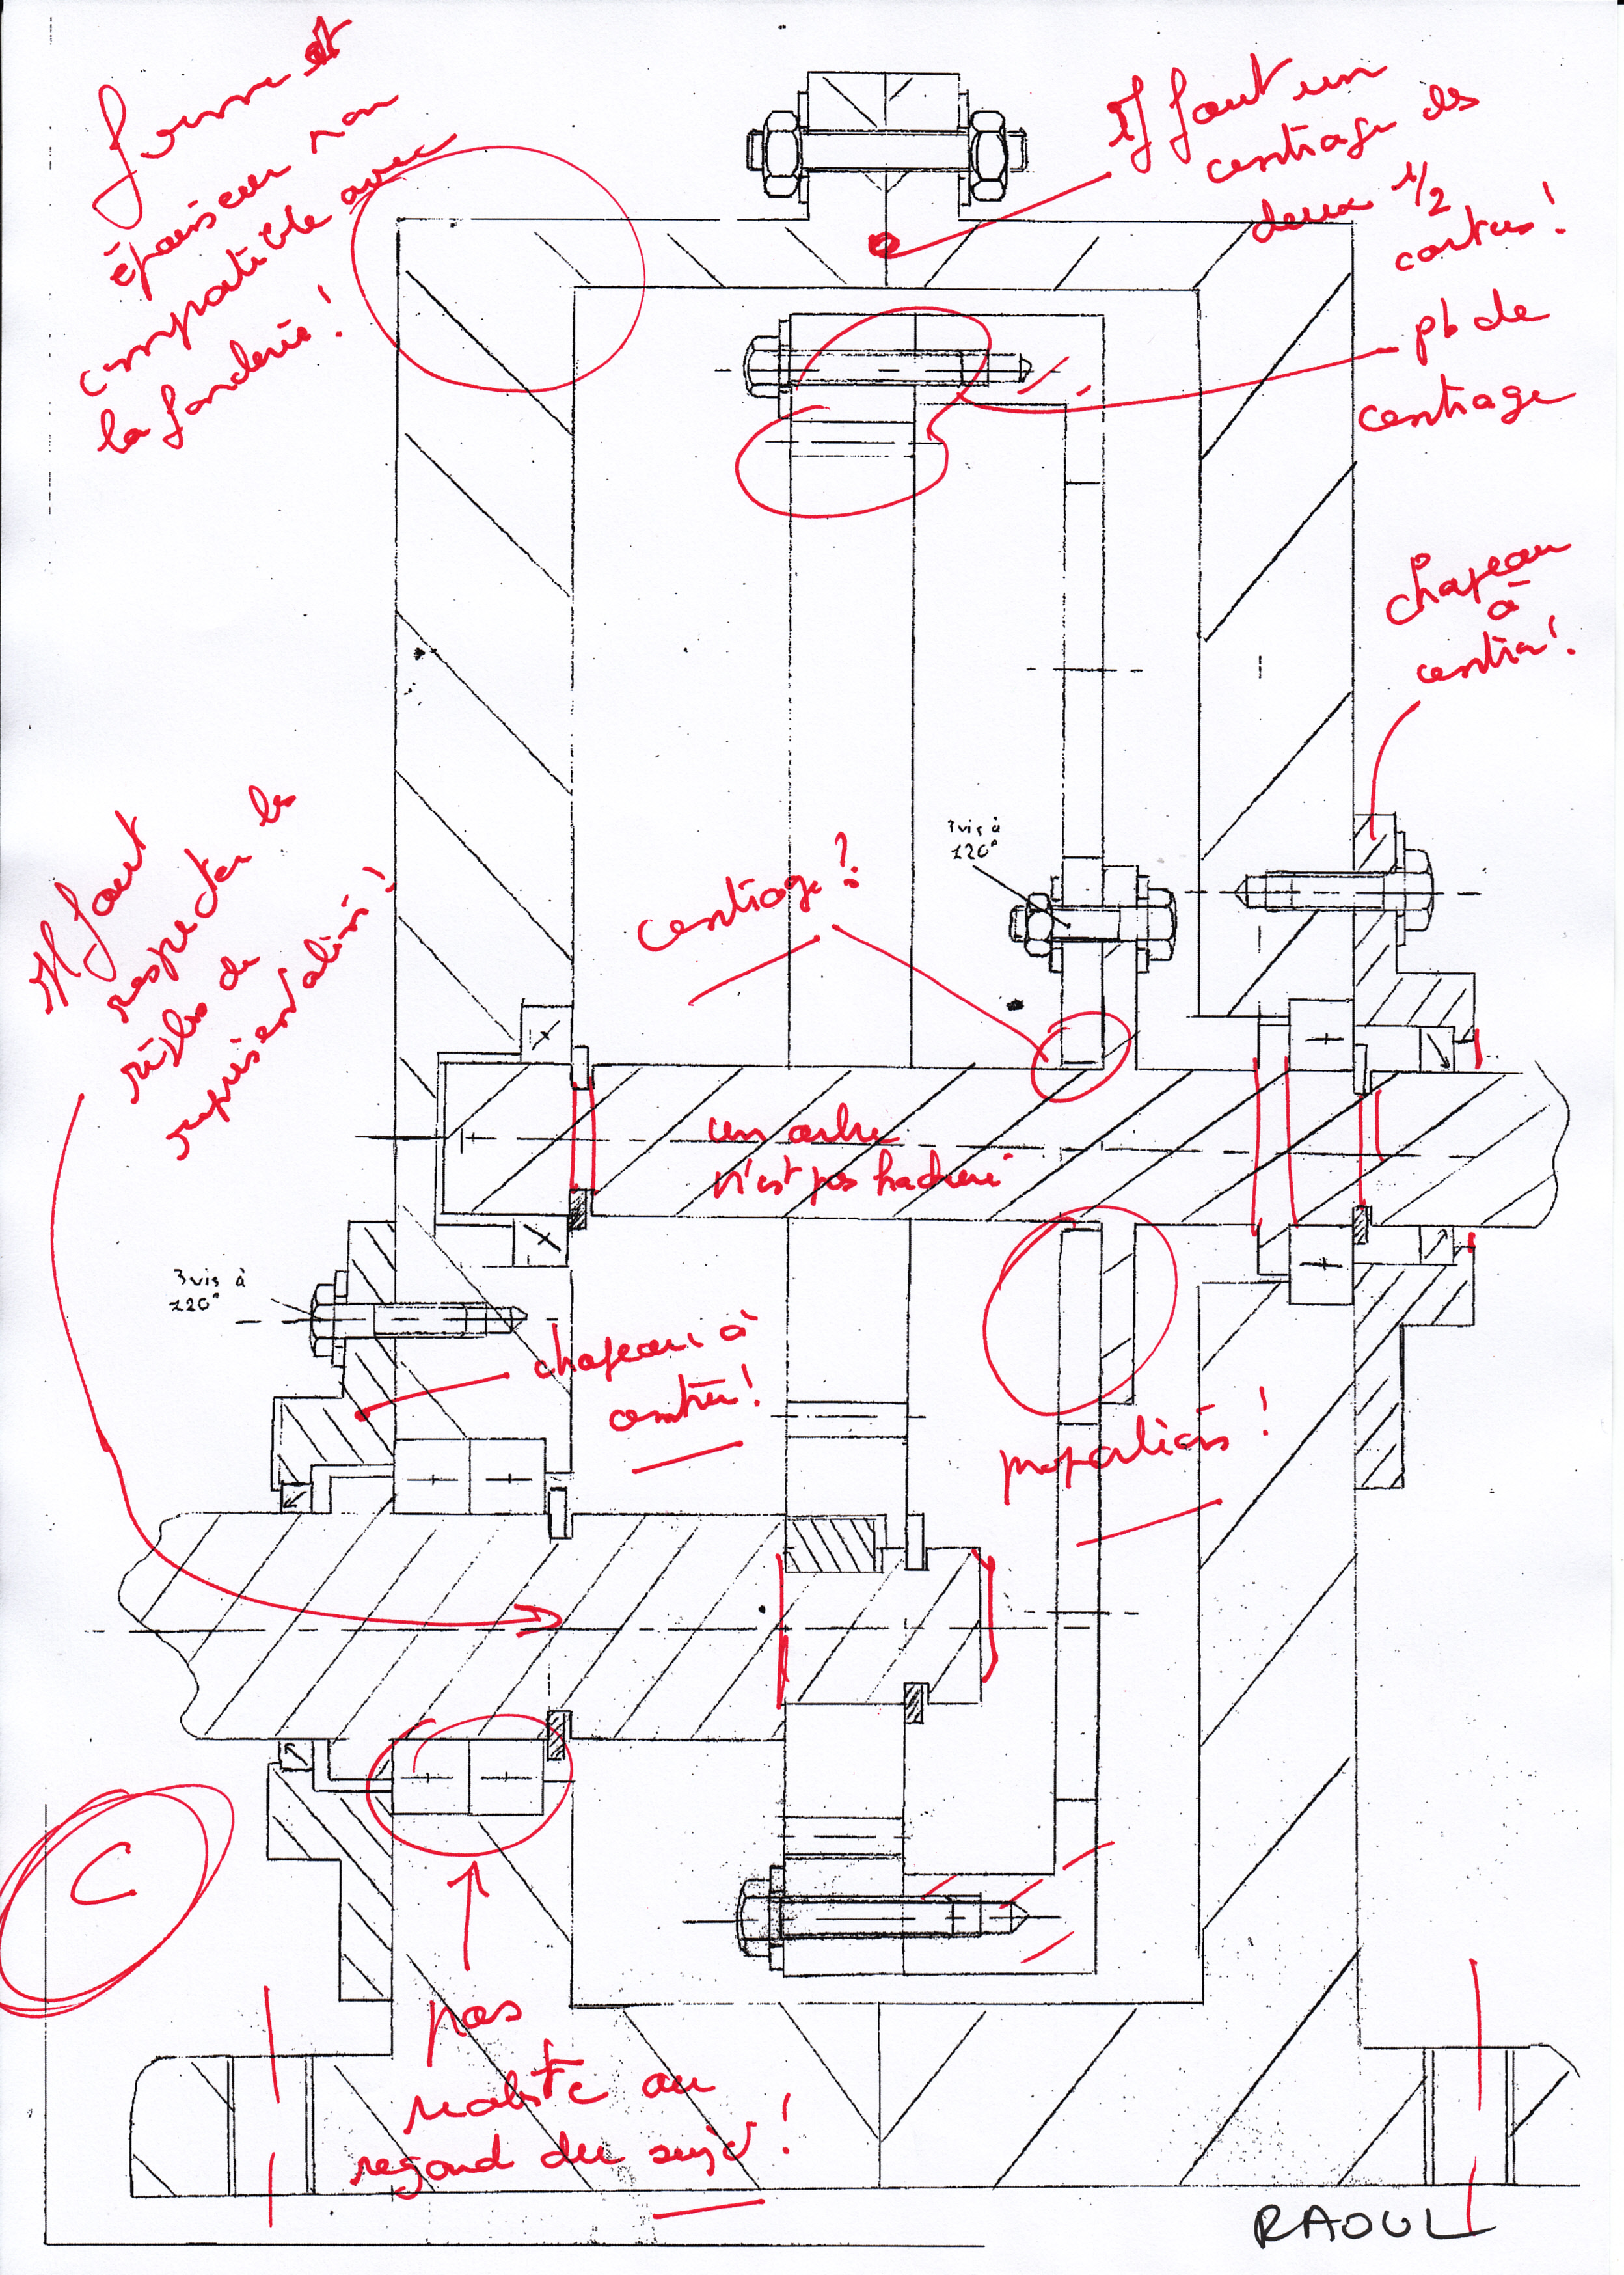 forme et
épaisseur non
compatible avec
la fonderie !
Il faut un
centrage des
deux 1/2
carters !
pb de
centrage
chapeau
à
centrer !
Il faut
respecter les
règles de
représentation !
centrage ?
3 vis à
120°
un arbre
n'est pas hachuré
3 vis à
120°
chapeau à
centrer !
proportions !
C
pas
réaliste au
regard du sujet !
RAOUL